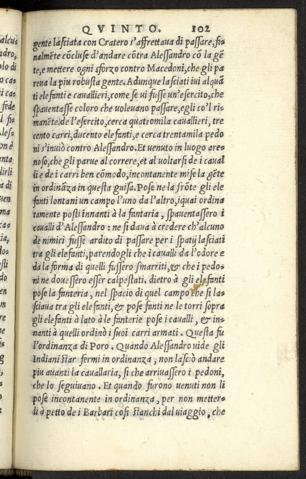 QVINTO. 102
gente lasciata con Cratero s'affrettaua di passare, fi
nalmẽte cõcluse d'andare cõtra Alessandro cõ la gẽ
te, e mettere ogni sforzo contro Macedoni, che gli pa
reua la piu robusta gente. Adunque lasciati iui alquã
ti elefanti e cauallieri, come se ui fusse un'esercito, che
spauentasse coloro che uoleuano passare, egli co'l ri-
manẽte de l'esercito, cerca quatromila cauallieri, tre
cento carri, ducento elefanti, e cerca trentamila pedo
ni s'inuiò contro Alessandro. Et uenuto in luogo are-
noso, che gli parue al correre, et al uoltarsi de i caual
li e de i carri ben cõmodo, incontanente mise la gẽte
in ordinãza in questa guisa. Pose ne la frõte gli ele
fanti lontani un campo l'uno da l'altro, i quai ordina
tamente posti innanti à la fantaria, spauentassero i
caualli d'Alessandro: ne si daua à credere ch'alcuno
de nimici fusse ardito di passare per i spatij lasciati
tra gli elefanti, parendogli che i caualli da l'odore e
da la forma di quelli fussero smarriti, & che i pedo-
ni ne douessero esser calpestati. dietro à gli elefanti
pose la fanteria, nel spacio di quel campo che si la-
sciaua tra gli elefanti, & pose fanti ne le torri sopra
gli elefanti à lato à le fantarie pose i caualli, & in-
nanti à quelli ordinò i suoi carri armati. Questa fu
l'ordinanza di Poro. Quando Alessandro uide gli
Indiani star fermi in ordinanza, non lasciò andare
piu auanti la cauallaria, si che arriuassero i pedoni,
che lo seguiuano. Et quando furono uenuti non li
pose incontanente in ordinanza, per non metter-
li à petto de i Barbari cosi stanchi dal uiaggio, che